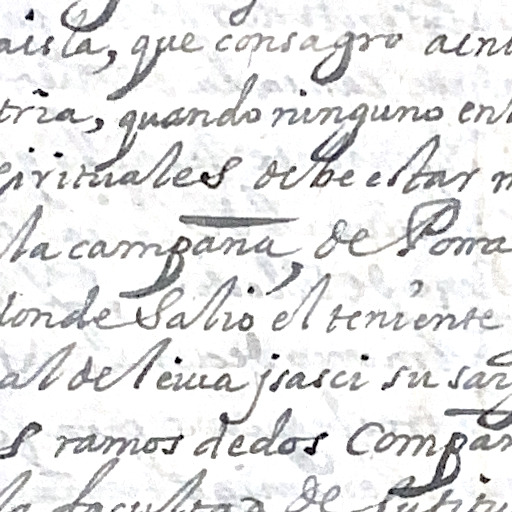 aista, que consagro aent
tria, quando ninguno ent
pirituales debe estar m
la campana, de Poma
donde Salió el teniente
al de leiua jsasci su sarg
s ramos dedos Compan
la facultad de sutitu